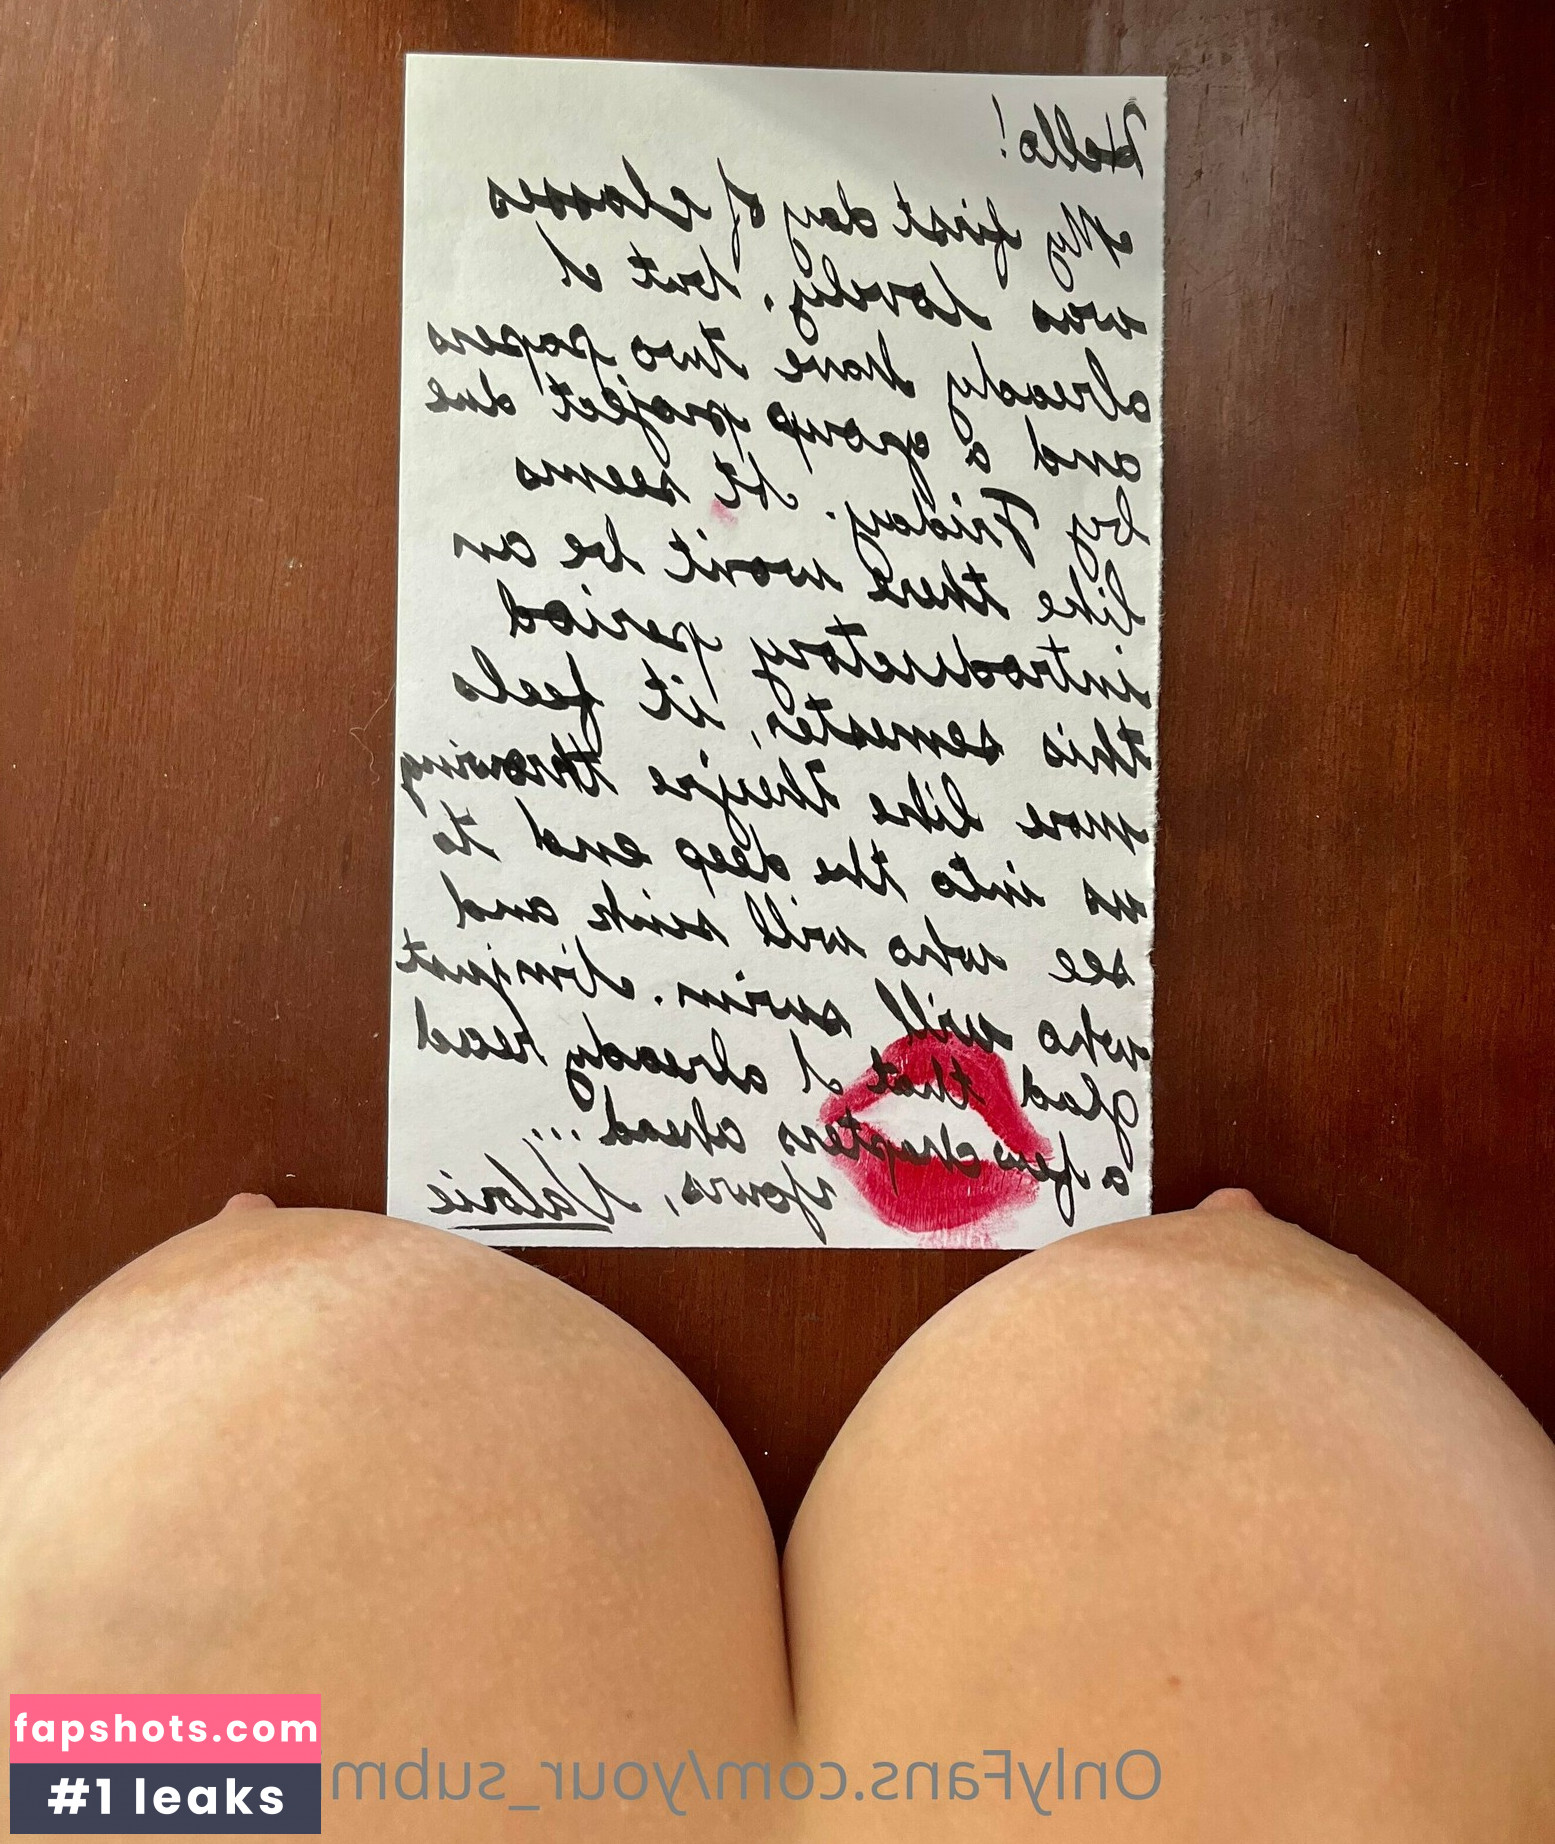 Hello!
My first day of classes
was lovely, but I
already have two papers
and a group project due
by Friday. It seems
like there won't be an
introductory period
this semester, it feels
more like they're throwing
us into the deep end to
see who will sink and
who will swim. I'm just
glad that I already read
a few chapters ahead...
Yours, Valorie
fapshots.com
#1 leaks
OnlyFans.com/your_subm